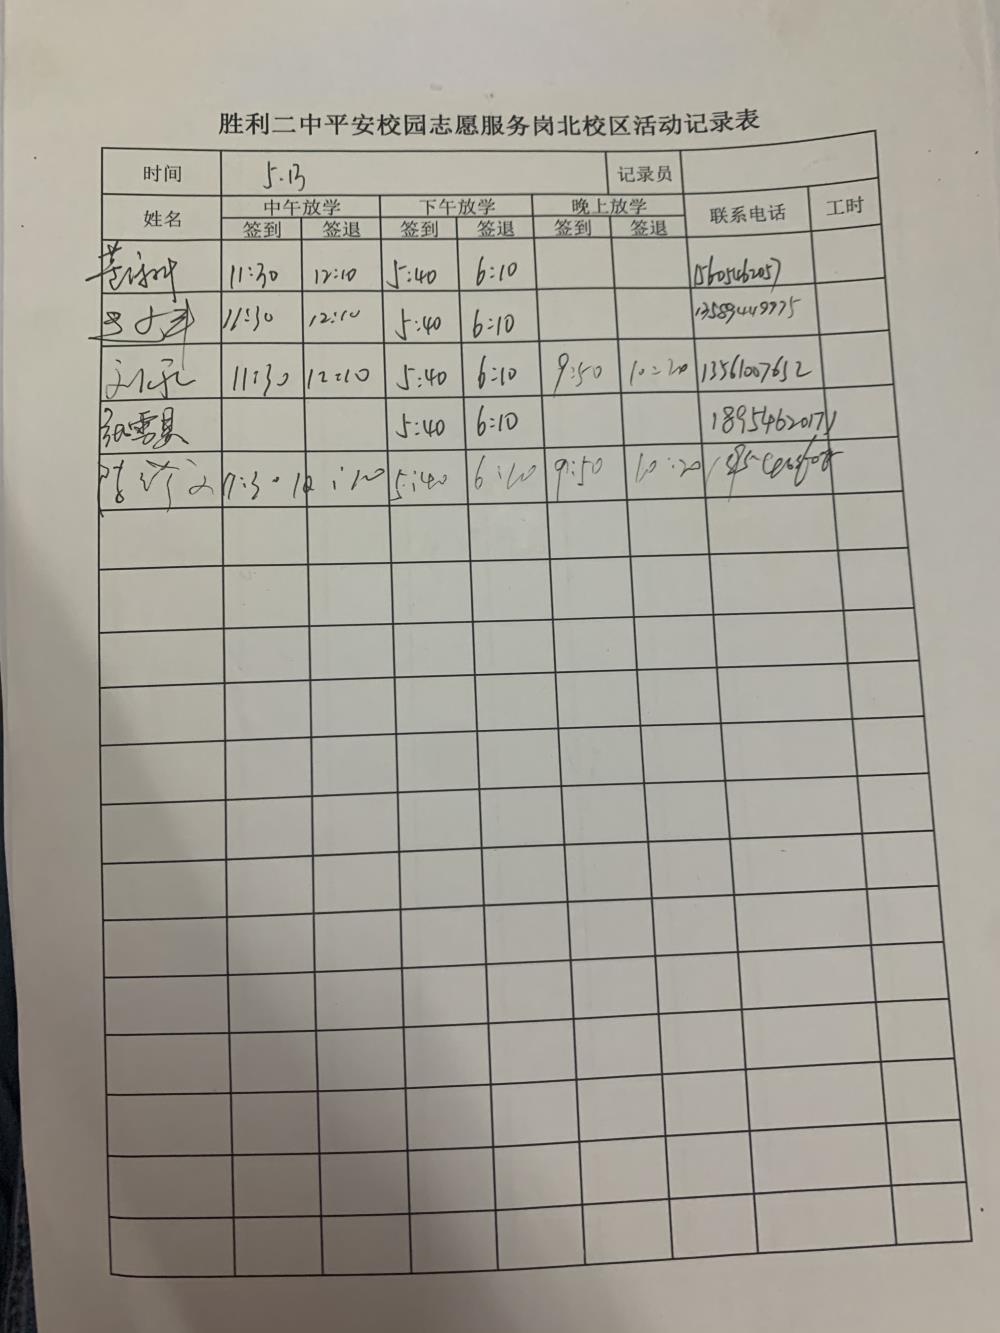 胜利二中平安校园志愿服务岗北校区活动记录表
时间 5.13 记录员
姓名 中午放学 下午放学 晚上放学 联系电话 工时
签到 签退 签到 签退 签到 签退
11:30 12:10 5:40 6:10 15605462057
11:30 12:10 5:40 6:10 13589449775
11:30 12:10 5:40 6:10 9:50 10:20 13561007652
张雪真 5:40 6:10
11:30 12:10 5:40 6:10 9:50 10:20